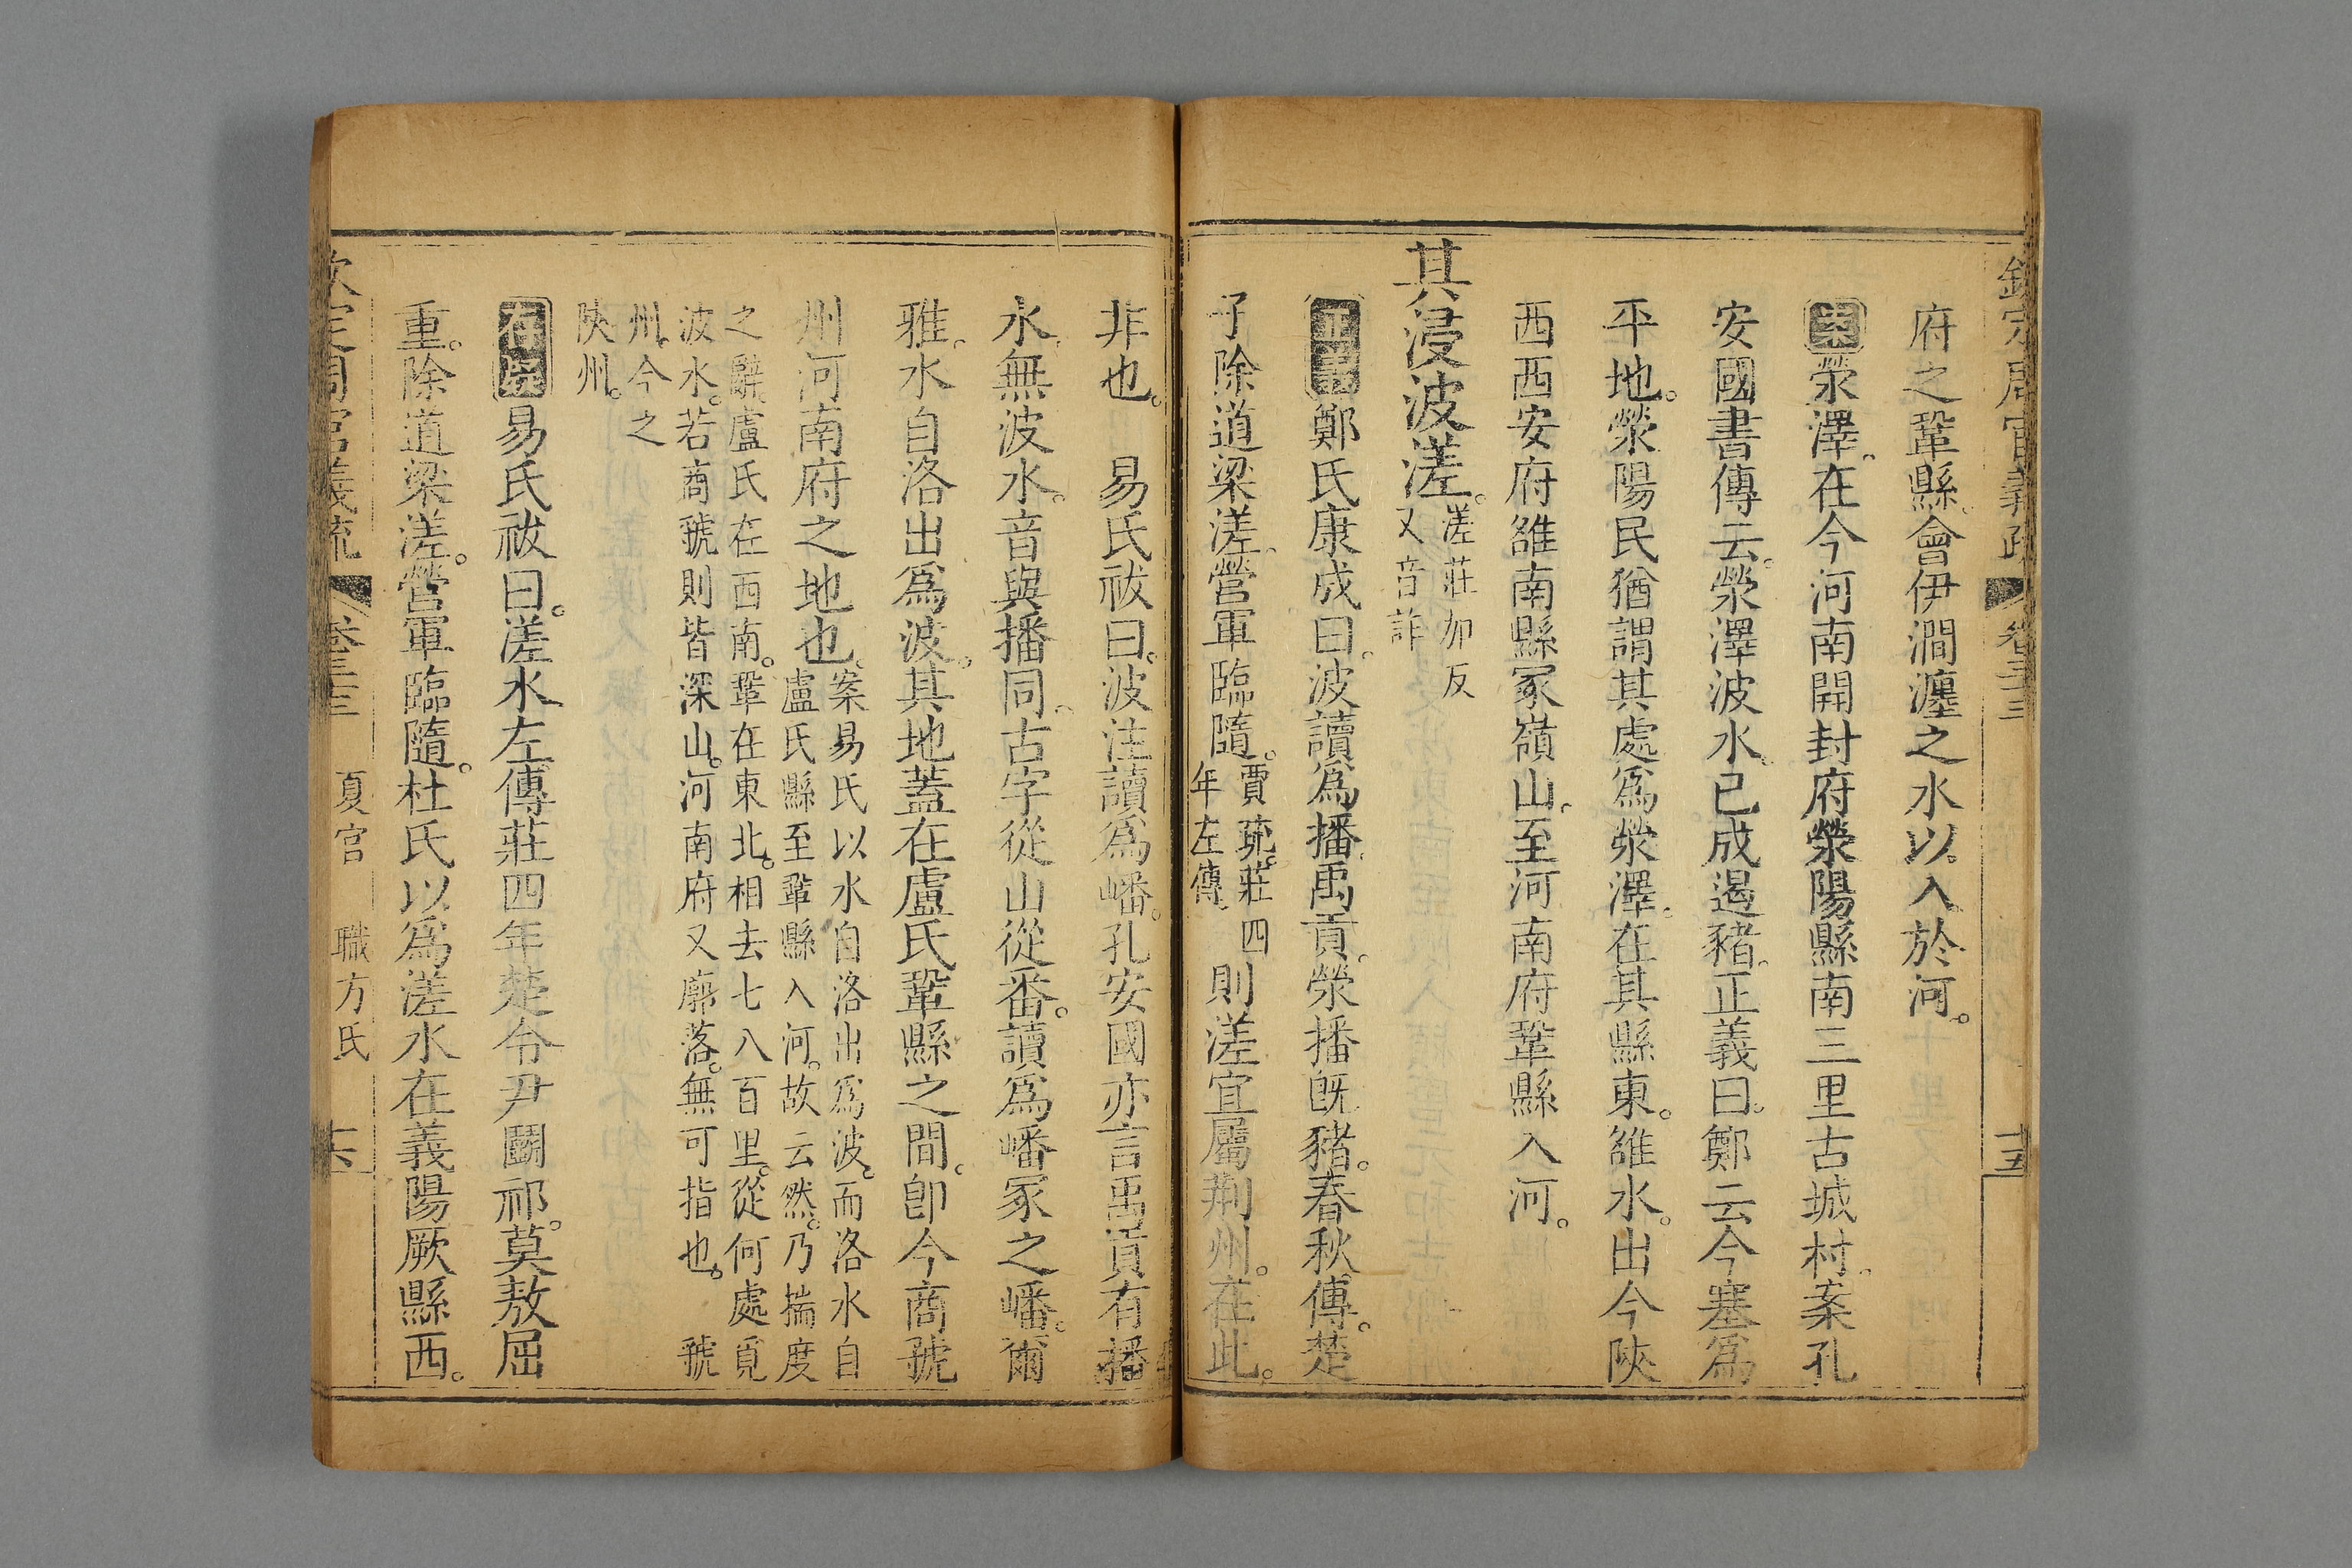 欽定周官義疏 卷三十三 十五
府之鞏縣會伊澗瀍之水以入於河。
案滎澤在今河南開封府滎陽縣南三里古城村案孔
安國書傳云滎澤波水已成遏豬正義曰鄭云今塞爲
平地滎陽民猶謂其處爲滎澤在其縣東。雒水出今陝
西西安府雒南縣冢嶺山至河南府鞏縣入河。
其浸波溠。溠莊加反
又音詐
鄭氏康成曰波讀爲播禹貢滎播旣豬。春秋傳楚
子除道梁溠營軍臨隨。賈疏莊四
年左傳
則溠宜屬荆州。在此。
非也。易氏祓曰波注讀爲嶓。孔安國亦言禹貢有播
水無波水。音與播同古字從山從番。讀爲嶓冢之嶓爾
雅水自洛出爲波其地蓋在盧氏鞏縣之間卽今商號
州河南府之地也。案易氏以水自洛出爲波。而洛水自
盧氏縣至鞏縣入河。故云然。乃揣度
之辭盧氏在西南。鞏在東北。相去七八百里。從何處覓
波水。若商虢則皆深山。河南府又廓落。無可指也。虢
州。今之
陝州。
易氏祓曰。溠水左傳莊四年楚令尹鬭祁。莫敖屈
重。除道梁溠。營軍臨隨。杜氏以爲溠水在義陽厥縣西。
欽定周官義疏 卷三十三 夏官 職方氏 十六